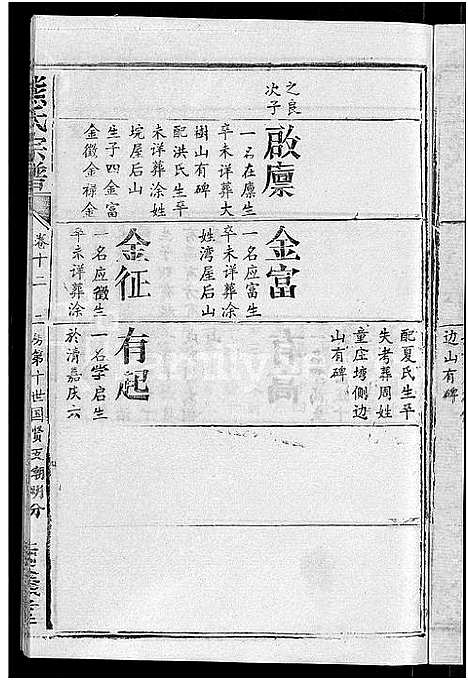 之良
次子
啟廪
一名在廪生
卒未详葬大
樹山有碑
配洪氏生平
未详葬涂姓
垸屋后山
生子四金富
金徵金禄金
金富
一名应富生
卒未详葬涂
姓湾屋后山
金征
一名应徵生
卒未详葬涂
配夏氏生平
失考葬周姓
童庄塆侧边
山有碑
有起
一名学启生
於清嘉庆六
熊氏宗谱
卷十二
房第十世国贤
朝明分
边山有碑